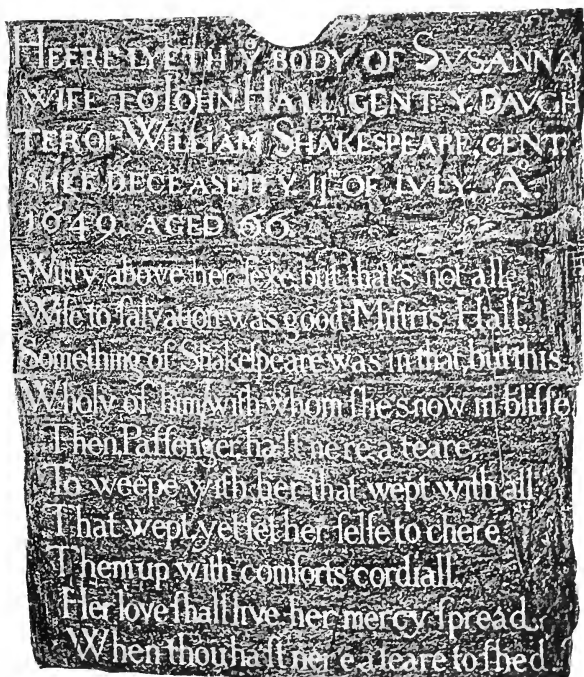 HEERE LYETH Yᵉ BODY OF SVSANNA
WIFE TO IOHN HALL, GENT: Yᵉ DAVGH
TER OF WILLIAM SHAKESPEARE, GENT:
SHEE DECEASED Yᵉ 11ᵗʰ OF IVLY, Aᵒ
1649, AGED 66.
Witty above her ſexe, but that's not all,
Wiſe to ſalvation was good Miſtris Hall,
Something of Shakeſpeare was in that, but this
Wholy of him with whom ſhe's now in bliſſe.
Then, Paſſenger, ha'ſt ne're a teare,
To weepe with her that wept with all;
That wept, yet ſet her ſelfe to chere
Them up with comforts cordiall.
Her love ſhall live, her mercy ſpread,
When thou ha'ſt ner'e a teare to ſhed.